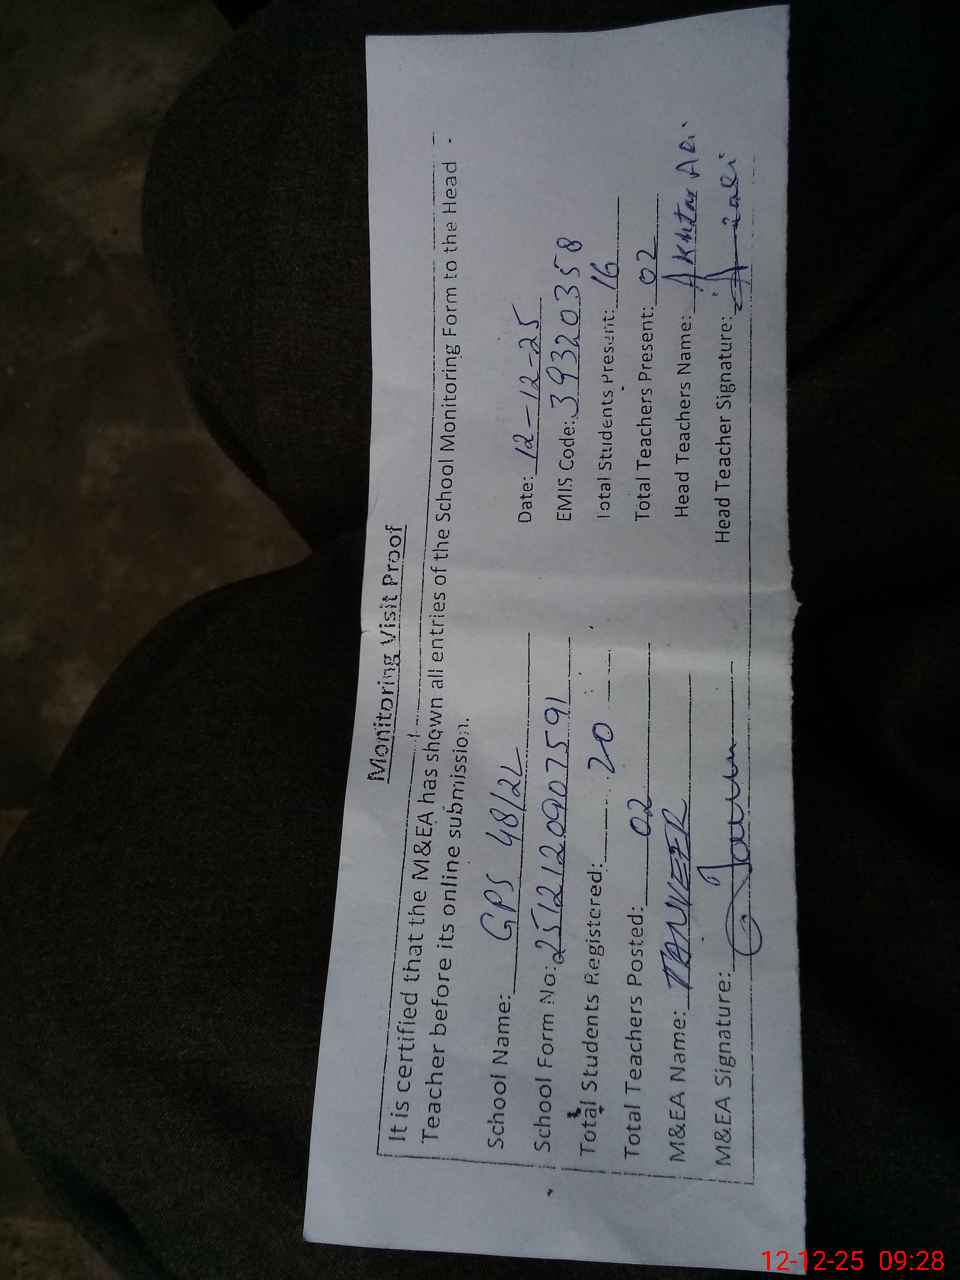 Monitoring Visit Proof
It is certified that the M&EA has shown all entries of the School Monitoring Form to the Head
Teacher before its online submission.
School Name: GPS 48/2L
Date: 12-12-25
School Form No: 251212090757591
EMIS Code: 39320358
Total Students Registered: 20
Total Students Present: 16
Total Teachers Posted: 02
Total Teachers Present: 02
M&EA Name: TANVEER
Head Teachers Name: Akhtar Ali
M&EA Signature:
Head Teacher Signature:
12-12-25 09:28